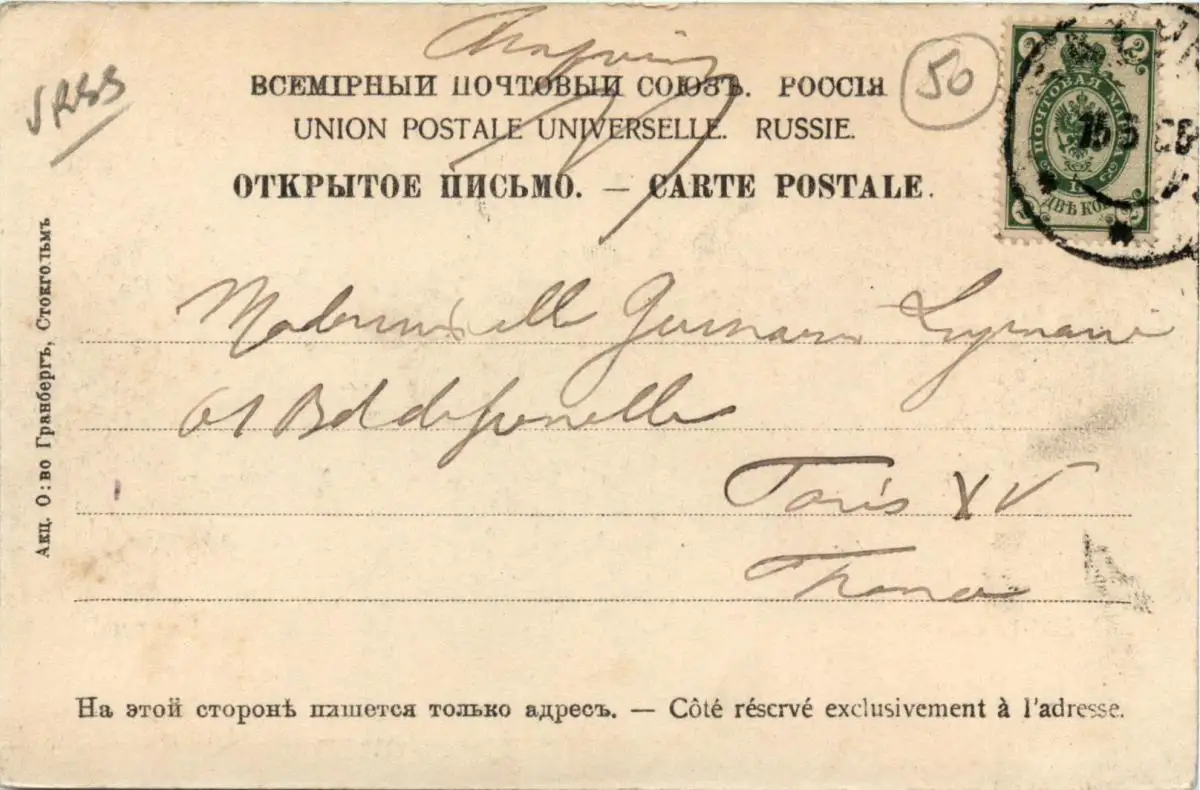 URSS
50
ВСЕМІРНЫЙ ПОЧТОВЫЙ СОЮЗЪ. РОССІЯ
UNION POSTALE UNIVERSELLE. RUSSIE.
ОТКРЫТОЕ ПИСЬМО. — CARTE POSTALE.
ПОЧТОВАЯ МАРКА
2 2
ДВѢ КОП
2 2
15 5
Акц. О:во Гранбергъ, Стокгольмъ
Mademoiselle
61 Bd de Grenelle
Paris XV
France
На этой сторонѣ пишется только адресъ. — Côté réservé exclusivement à l'adresse.